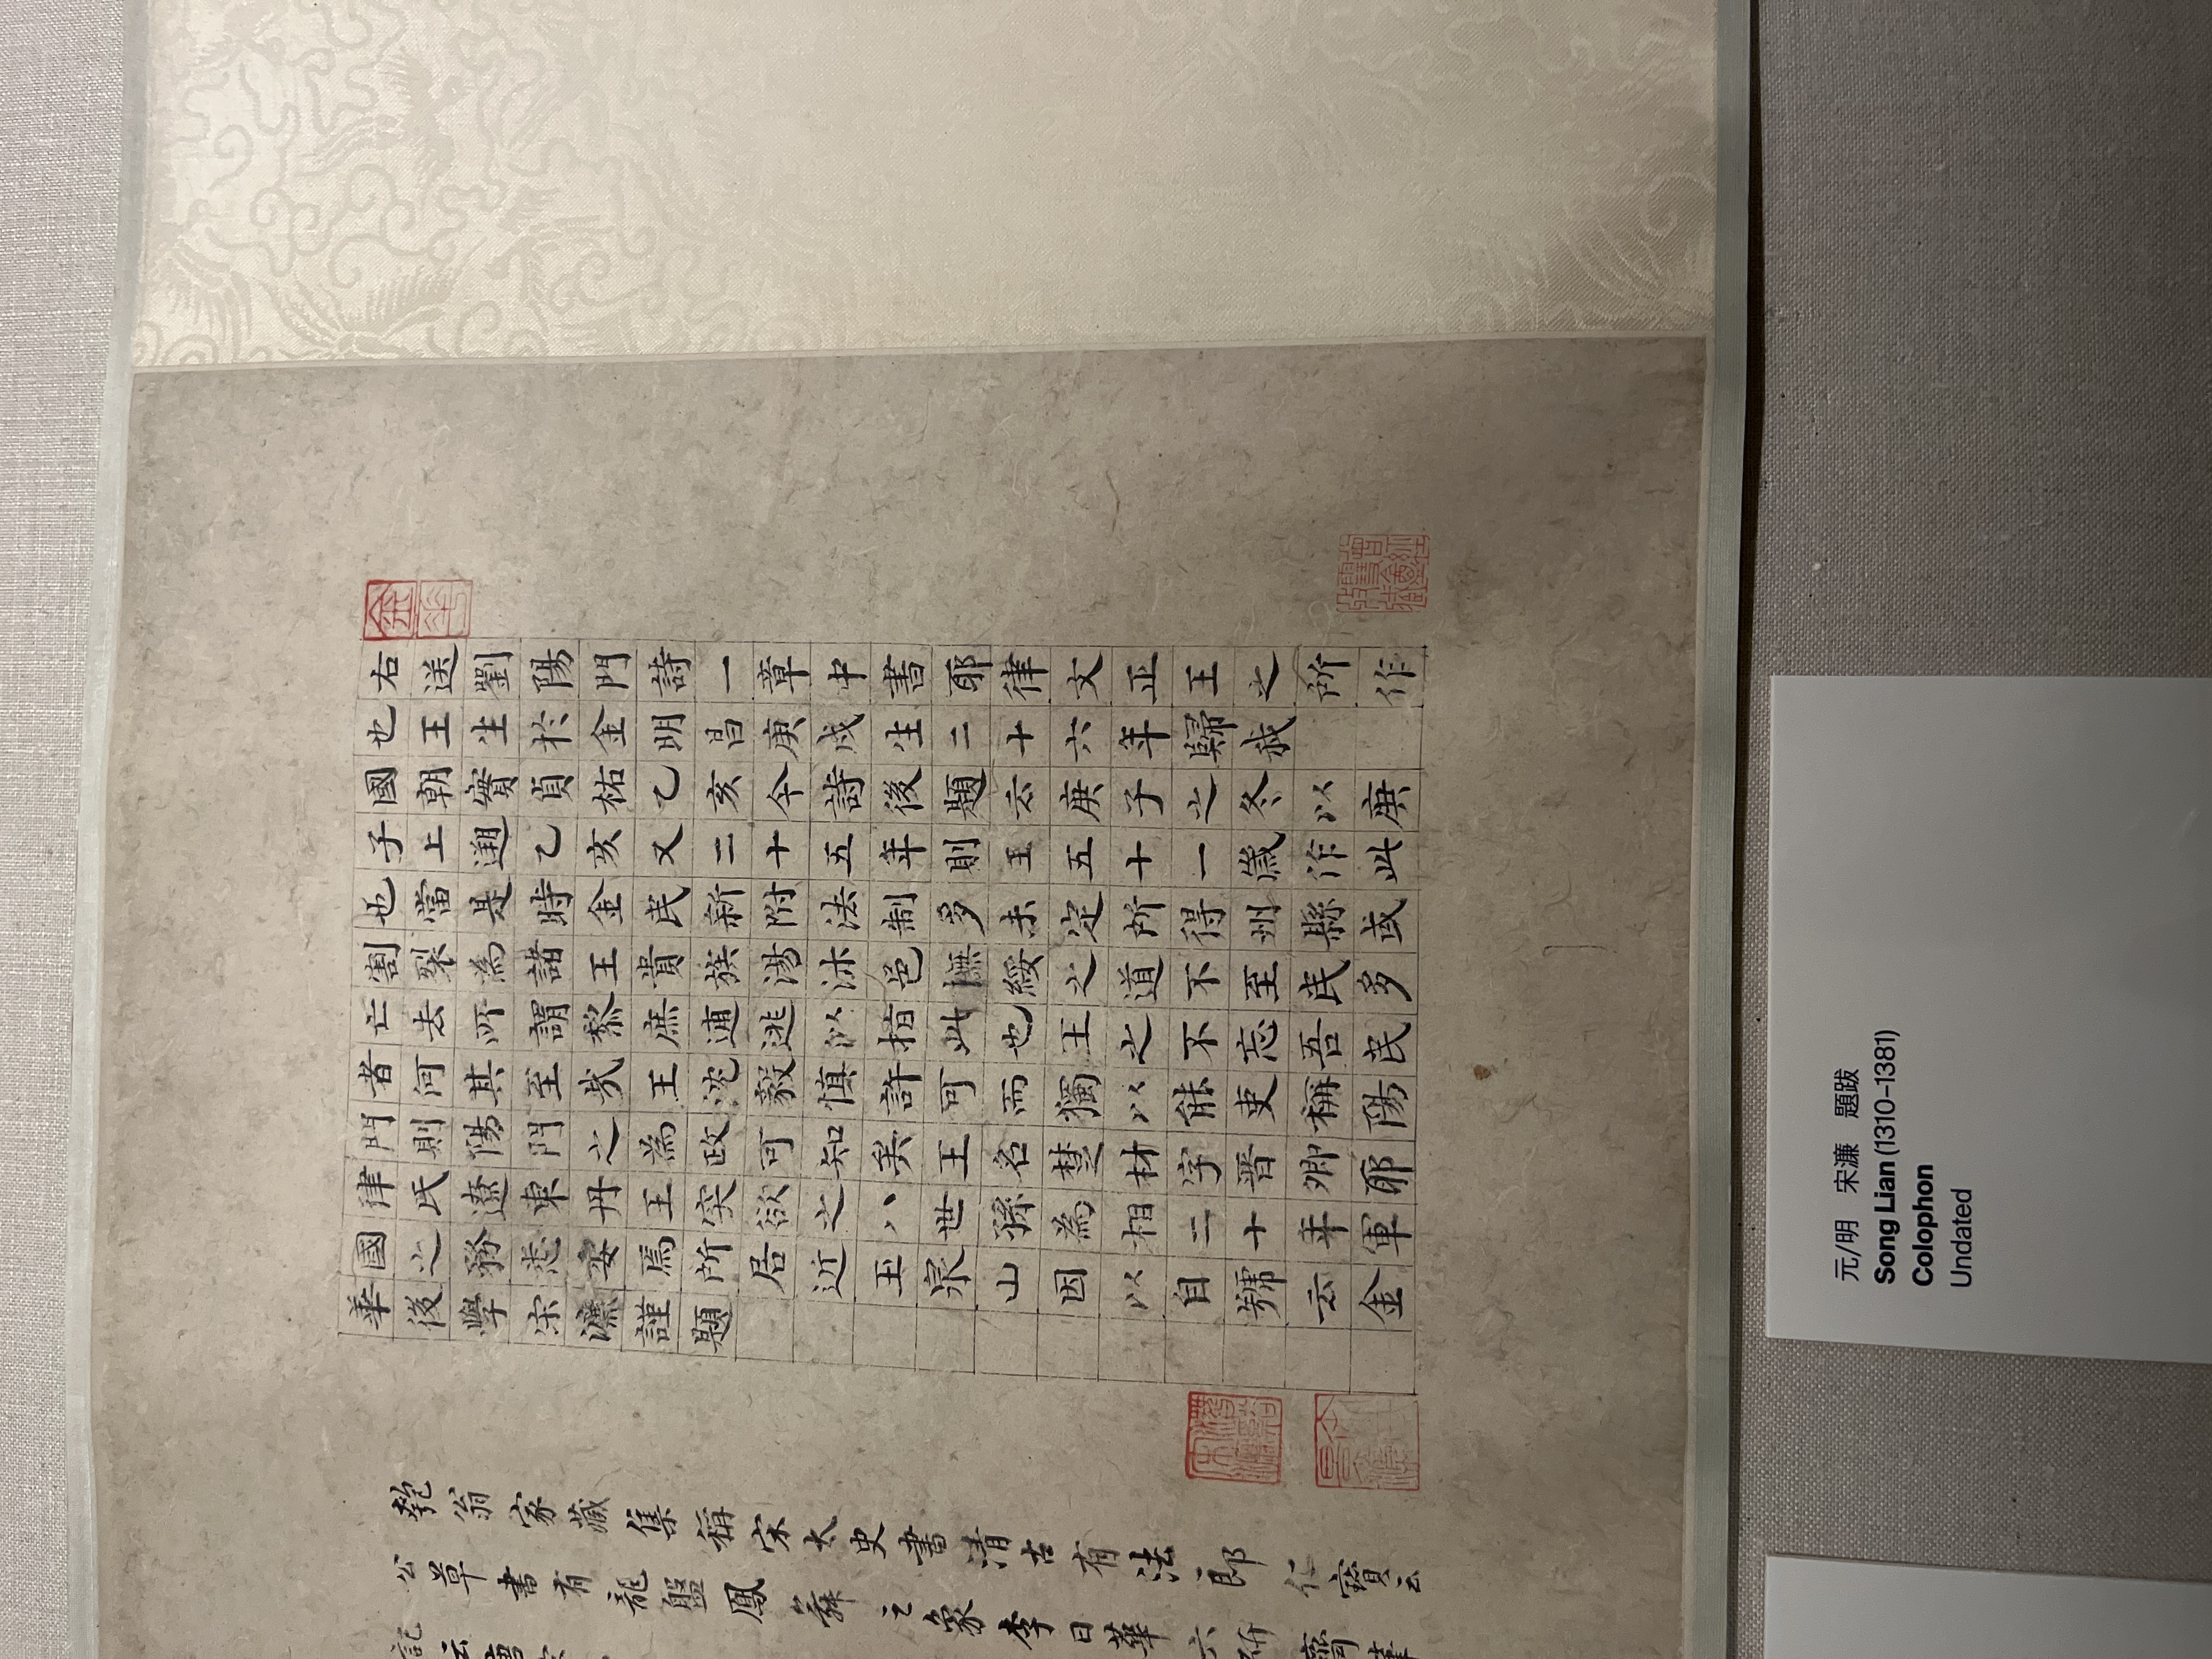 金華
右送劉陽門詩一章中書耶律文正王之所作
也王生於金明昌庚戍生二十六年歸我
國朝實貞祐乙亥今詩後題云庚子之冬以庚
子上遡乙亥又二十五年則王五十一歲作此
也當是時金民新附法制多未定所得州縣或
割裂為諸王貴族湯沐邑撫綏之道不至民多
亡去所謂黎庶逋逃以指此也王之不忘吾民
者何其至哉王沈毅慎許可而獨以能吏稱陽
門則陽門之為政可知矣王名楚材字晉卿耶
律氏遼東丹王突欲之八世孫為相二十年軍
國之務悉安焉所居近玉泉山因以自號云金
華後學宋濂謹題
匏翁家藏集稱宋太史書清古有法郎仁寶云
公草書有龍盤鳳舞之象李日華六研齋筆
記云唐宋
元/明 宋濂 題跋
Song Lian (1310–1381)
Colophon
Undated